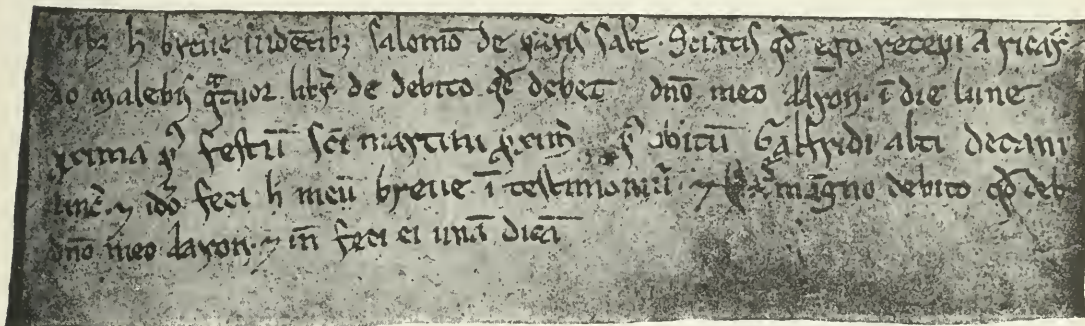 h breve vidētibȝ salomō de parisi salt. Sciatis qd̄ ego recepi a ricar
do malebis q̄tuor libr̄ de debito qd̄ debet dn̄o meo Aaron. ī die lune
proxima pꝰ festū sc̄i martini pꝰ obitū Galfridi alti decani
linc̄. ⁊ idō feci h meū breve ī testimoniū. ⁊ magno debito qd̄ deb
dn̄o meo aaron. ⁊ feci ei unā dicā